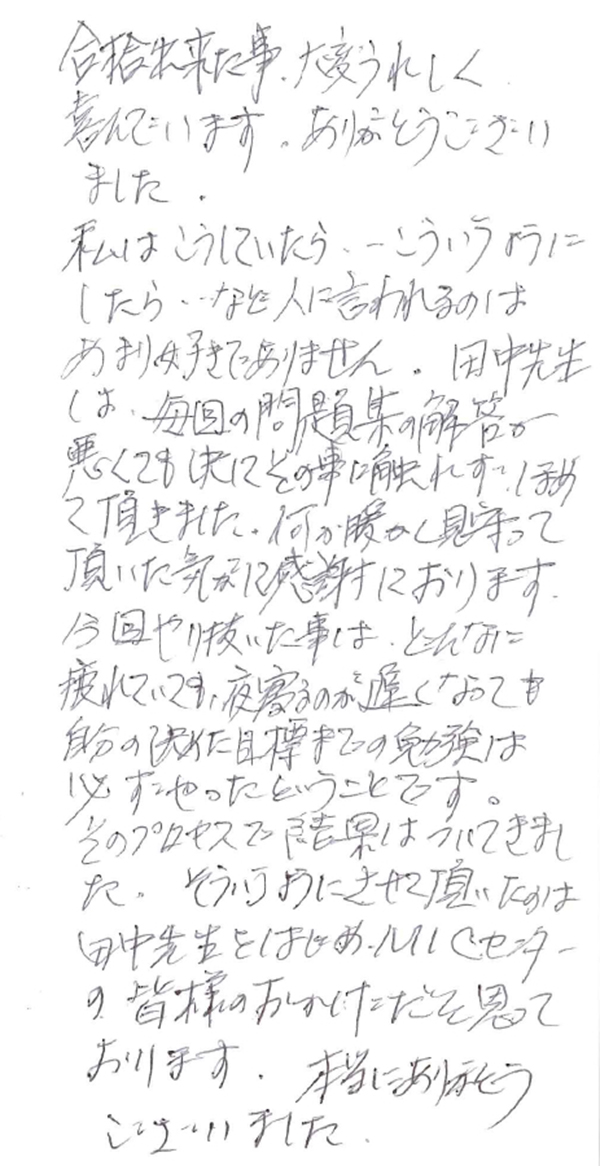 合格出来た事、大変うれしく
喜んでいます。ありがとうござい
ました。
私はこうしていたら、-こういうように
したら‥など人に言われるのは
あまり好きでありません。田中先生
は、毎回の問題集の解答が
悪くても決してその事に触れず、ほめ
て頂きました。何か暖かく見守って
頂いた気がして感謝しております。
今回やり抜いた事は、どんなに
疲れていても、夜寝るのが遅くなっても
自分の決めた目標までの勉強は
必ずやったということです。
そのプロセスで結果はついてきまし
た。そういうようにさせて頂いたのは
田中先生をはじめ、MICセンター
の皆様のおかげだと思って
おります。本当にありがとう
ございました。